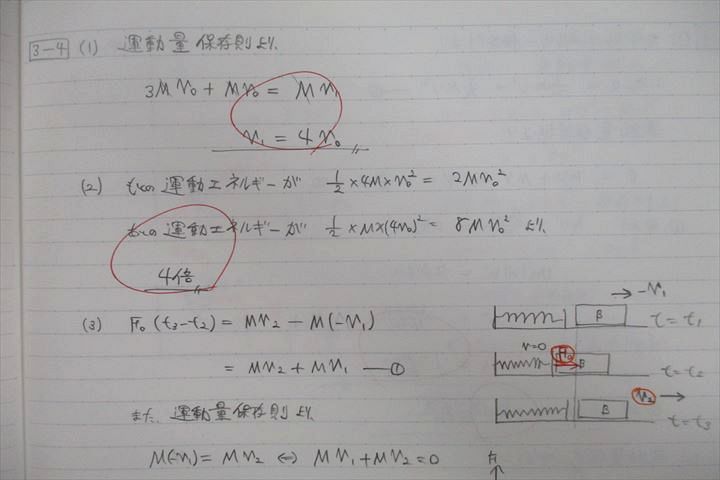 3-4 (1) 運動量保存則より、
3Mv₀ + Mv₀ = Mv₁
v₁ = 4v₀
(2) もとの運動エネルギーが 1/2 × 4M × v₀² = 2Mv₀²
運動エネルギーが 1/2 × M × (4v₀)² = 8Mv₀² より、
4倍
(3) F₀ (t₃ - t₂) = Mv₂ - M(-v₁)
= Mv₂ + Mv₁ ― ①
また、運動量保存則より、
M(-v₁) = Mv₂ ⇔ Mv₁ + Mv₂ = 0
→ -v₁
B
t = t₁
v=0
F₀
B
t = t₂
v₂ →
B
t = t₃